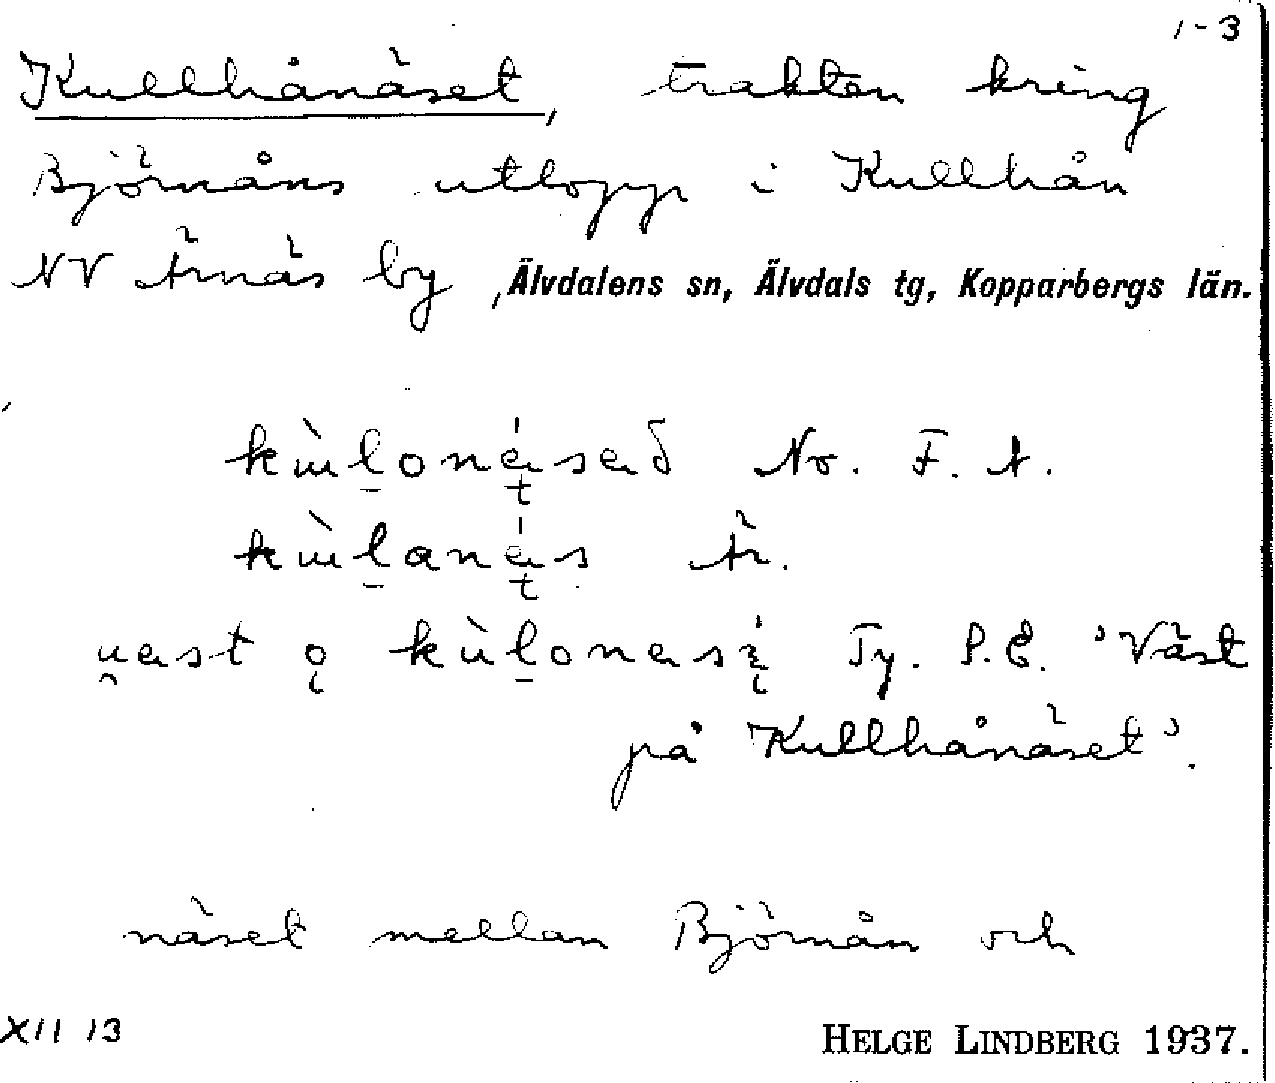 1-3
Kullhånäset, trakten kring
Björnåns utlopp i Kullhån
NV Ärnäs by, Älvdalens sn, Älvdals tg, Kopparbergs län.
No. F. A.
Är.
Ty. P.E. 'Väst
på Kullhånäset'.
näset mellan Björnån och
XII 13
HELGE LINDBERG 1937.